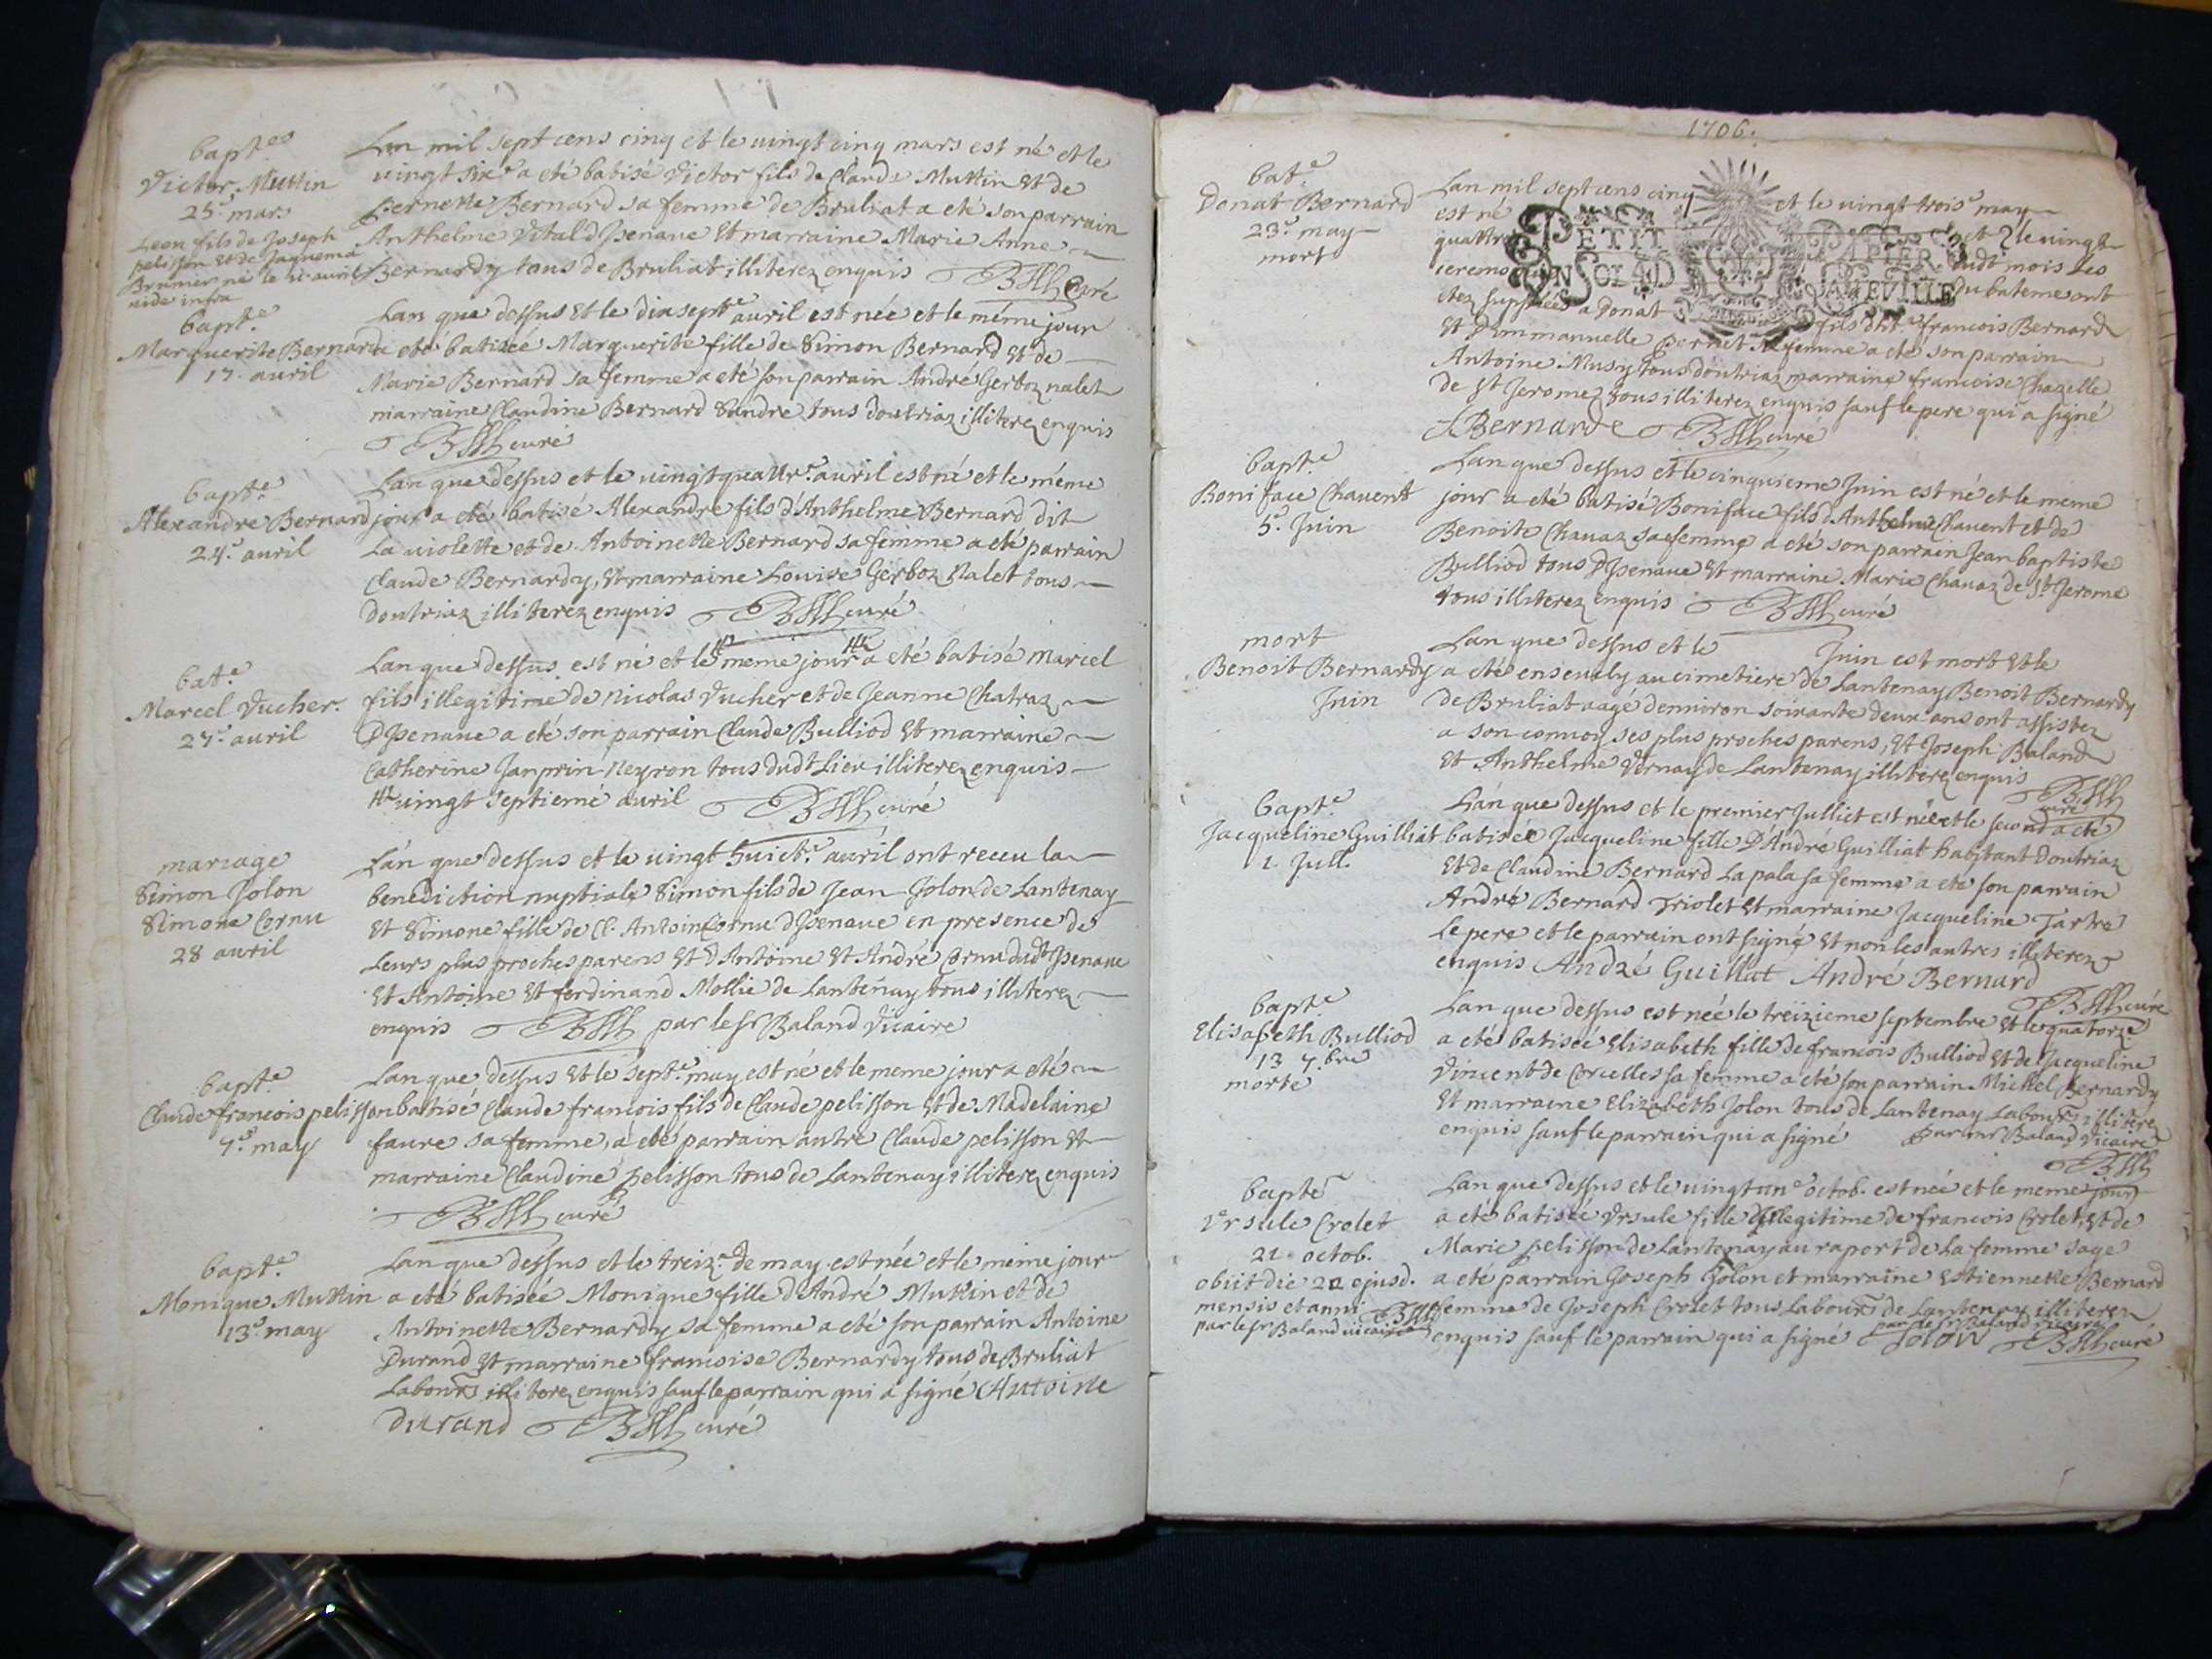 bapt.es
Victor Muttin
25.e mars
Leon fils de Joseph
pelisson et de Jaquema
Brunier né le 21 auril
uide infra
Lan mil sept cens cinq et le uingt cinq mars est né et le
uingt six.e a eté batisé Victor fils de Claude Muttin et de
pernette Bernard sa femme de Bruliat a eté son parrain
Anthelme Vital d'Jsenaue et marraine Marie Anne
Bernardy tous de Bruliat illiterez enquis curé
bapt.e
Marguerite Bernard
17. auril
Lan que dessus et le dix sept.e auril est née et le méme jour
a eté batisée Marguerite fille de Simon Bernard et de
Marie Bernard sa femme a eté son parrain André Gerboz nalet
marraine Claudine Bernard Sandre tous doutriaz illiterez enquis
curé
bapt.e
Alexandre Bernard
24.e auril
Lan que dessus et le uingt quattr.e auril est né et le méme
jour a eté batisé Alexandre fils d'Anthelme Bernard dit
La uiolette et de Antoinette Bernard sa femme a eté parrain
Claude Bernardy, et marraine Louise Gerboz Nalet tous
Doutriaz illiterez enquis curé
bat.e
Marcel Vucher.
27.e auril
Lan que dessus est né et le meme jour a eté batisé Marcel
fils illegitime de Nicolas Vucher et de Jeanne Chatraz
D'Jsenaue a eté son parrain Claude Bulliod et marraine
Catherine Janprin Neyron tous dudt Lieu illiterez enquis
uingt septiemé auril curé
mariage
Simon Jolon
Simone Cornu
28 auril
Lán que dessus et le uingt huict.e auril ont receu la
benediction nuptiale Simon fils de Jean Jolon de Lantenay
et Simone fille de Cl. Antoin Cornu d'Jsenaue en presence de
Leurs plus proches parens et d'Antoine et André Cornu dudt Jsenaue
et Antoine et ferdinand Mollie de Lantenay tous illiterez
enquis par le sr Baland Vicaire
bapt.e
Claude francois pelisson
7.e may
Lan que dessus et le sept.e may est né et le meme jour a eté
batisé Claude francois fils de Claude pelisson et de Madelaine
faure sa femme, a eté parrain autre Claude pelisson et
marraine Claudine pelisson tous de Lantenay illiterez enquis
curé
bapt.e
Monique Muttin
13.e may
Lan que dessus et le treiz.e de may est née et le méme jour
a eté batisée Monique fille d'André Muttin et de
Antoinette Bernardy sa femme a eté son parrain Antoine
Durand et marraine francoise Bernardy tous de Bruliat
Labours illiterez enquis sauf le parrain qui a signé Antoine
Durand curé
1706.
bat.e
Donat Bernard
23.e may
mort
Lan mil sept cens cinq et le uingt trois.e may
est né et le uingt
quattr dudt mois les
ceremo du bateme ont
etez supplées a Donat fils d'ht.e francois Bernard
et d'Emmanuelle pernet sa femme a eté son parrain
Antoine Musy tous doutriaz marraine francoise Chazelle
de St Jerome tous illiterez enquis sauf le pere qui a signé
Bernard curé
PETIT PAPIER
UN SOL 4D LA FEVILLE
bapt.e
Boniface Chauent
5.e Juin
Lan que dessus et le cinquieme Juin est né et le meme
jour a eté batisé Boniface fils d'Anthelme Chauent et de
Benoite Chauaz sa femme a eté son parrain Jean baptiste
Bulliod tous D'Jsenaue et marraine Marie Chauaz de St Jerome
tous illiterez enquis curé
mort
Benoit Bernardy
Juin
Lan que dessus et le Juin est mort et le
a eté enseuely au cimetiere de Lantenay Benoit Bernardy
de Bruliat aagé d'enuiron soixante deux ans ont assistez
a son conuoy ses plus proches parens, et Joseph Baland
et Anthelme Vernay de Lantenay illiterez enquis
curé
bapt.e
Jacqueline Guilliat
1. Jull.
Lán que dessus et le premier Julliet est née et le second a eté
batisée Jacqueline fille D'André Guilliat habitant Doutriaz
et de Claudine Bernard La pala sa femme a eté son parrain
André Bernard Triolet et marraine Jacqueline Tartre
Le pere et le parrain ont signé et non les autres illiterez
enquis André Guillat André Bernard
curé
bapt.e
Elisabeth Bulliod
13 7.bre
morte
Lan que dessus est née le treizieme septembre et le quatorz.e
a eté batisée Elisabeth fille de francois Bulliod et de Jacqueline
Vincent de Corcelles sa femme a eté son parrain Michel Bernardy
et marraine Elizabeth Jolon tous de Lantenay Labours illiterez
enquis sauf le parrain qui a signé par mr Baland Vicaire
bapte
Vrsule Crolet
21. octob.
obiit die 22 ejusd.
mensis et anni
par le sr Baland uicaire
Lan que dessus et le uingt un.e octob. est née et le meme jour
a eté batisée Vrsule fille Jllegitime de francois Crolet, et de
Marie pelisson de Lantenay au raport de La femme sage
a eté parrain Joseph Jolon et marraine Estiennette Bernard
femme de Joseph Crolet tous Labours de Lantenay illiterez
par le sr Baland Vicaire
enquis sauf le parrain qui a signé Jolon curé